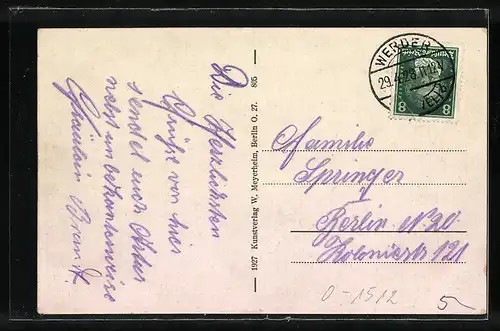 Die Herzlichsten
Grüße von hier
sendet euch Otto
nebst unbekannterweise
Fräulein Brandt.
1927 Kunstverlag W. Meyerheim, Berlin O. 27.
WERDER
29.4.
8 8
Familie
Springer
Berlin
Koloniestr 121
0-1512
5